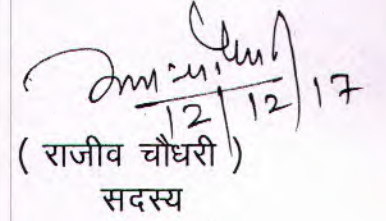 12/12/17
( राजीव चौधरी )
सदस्य